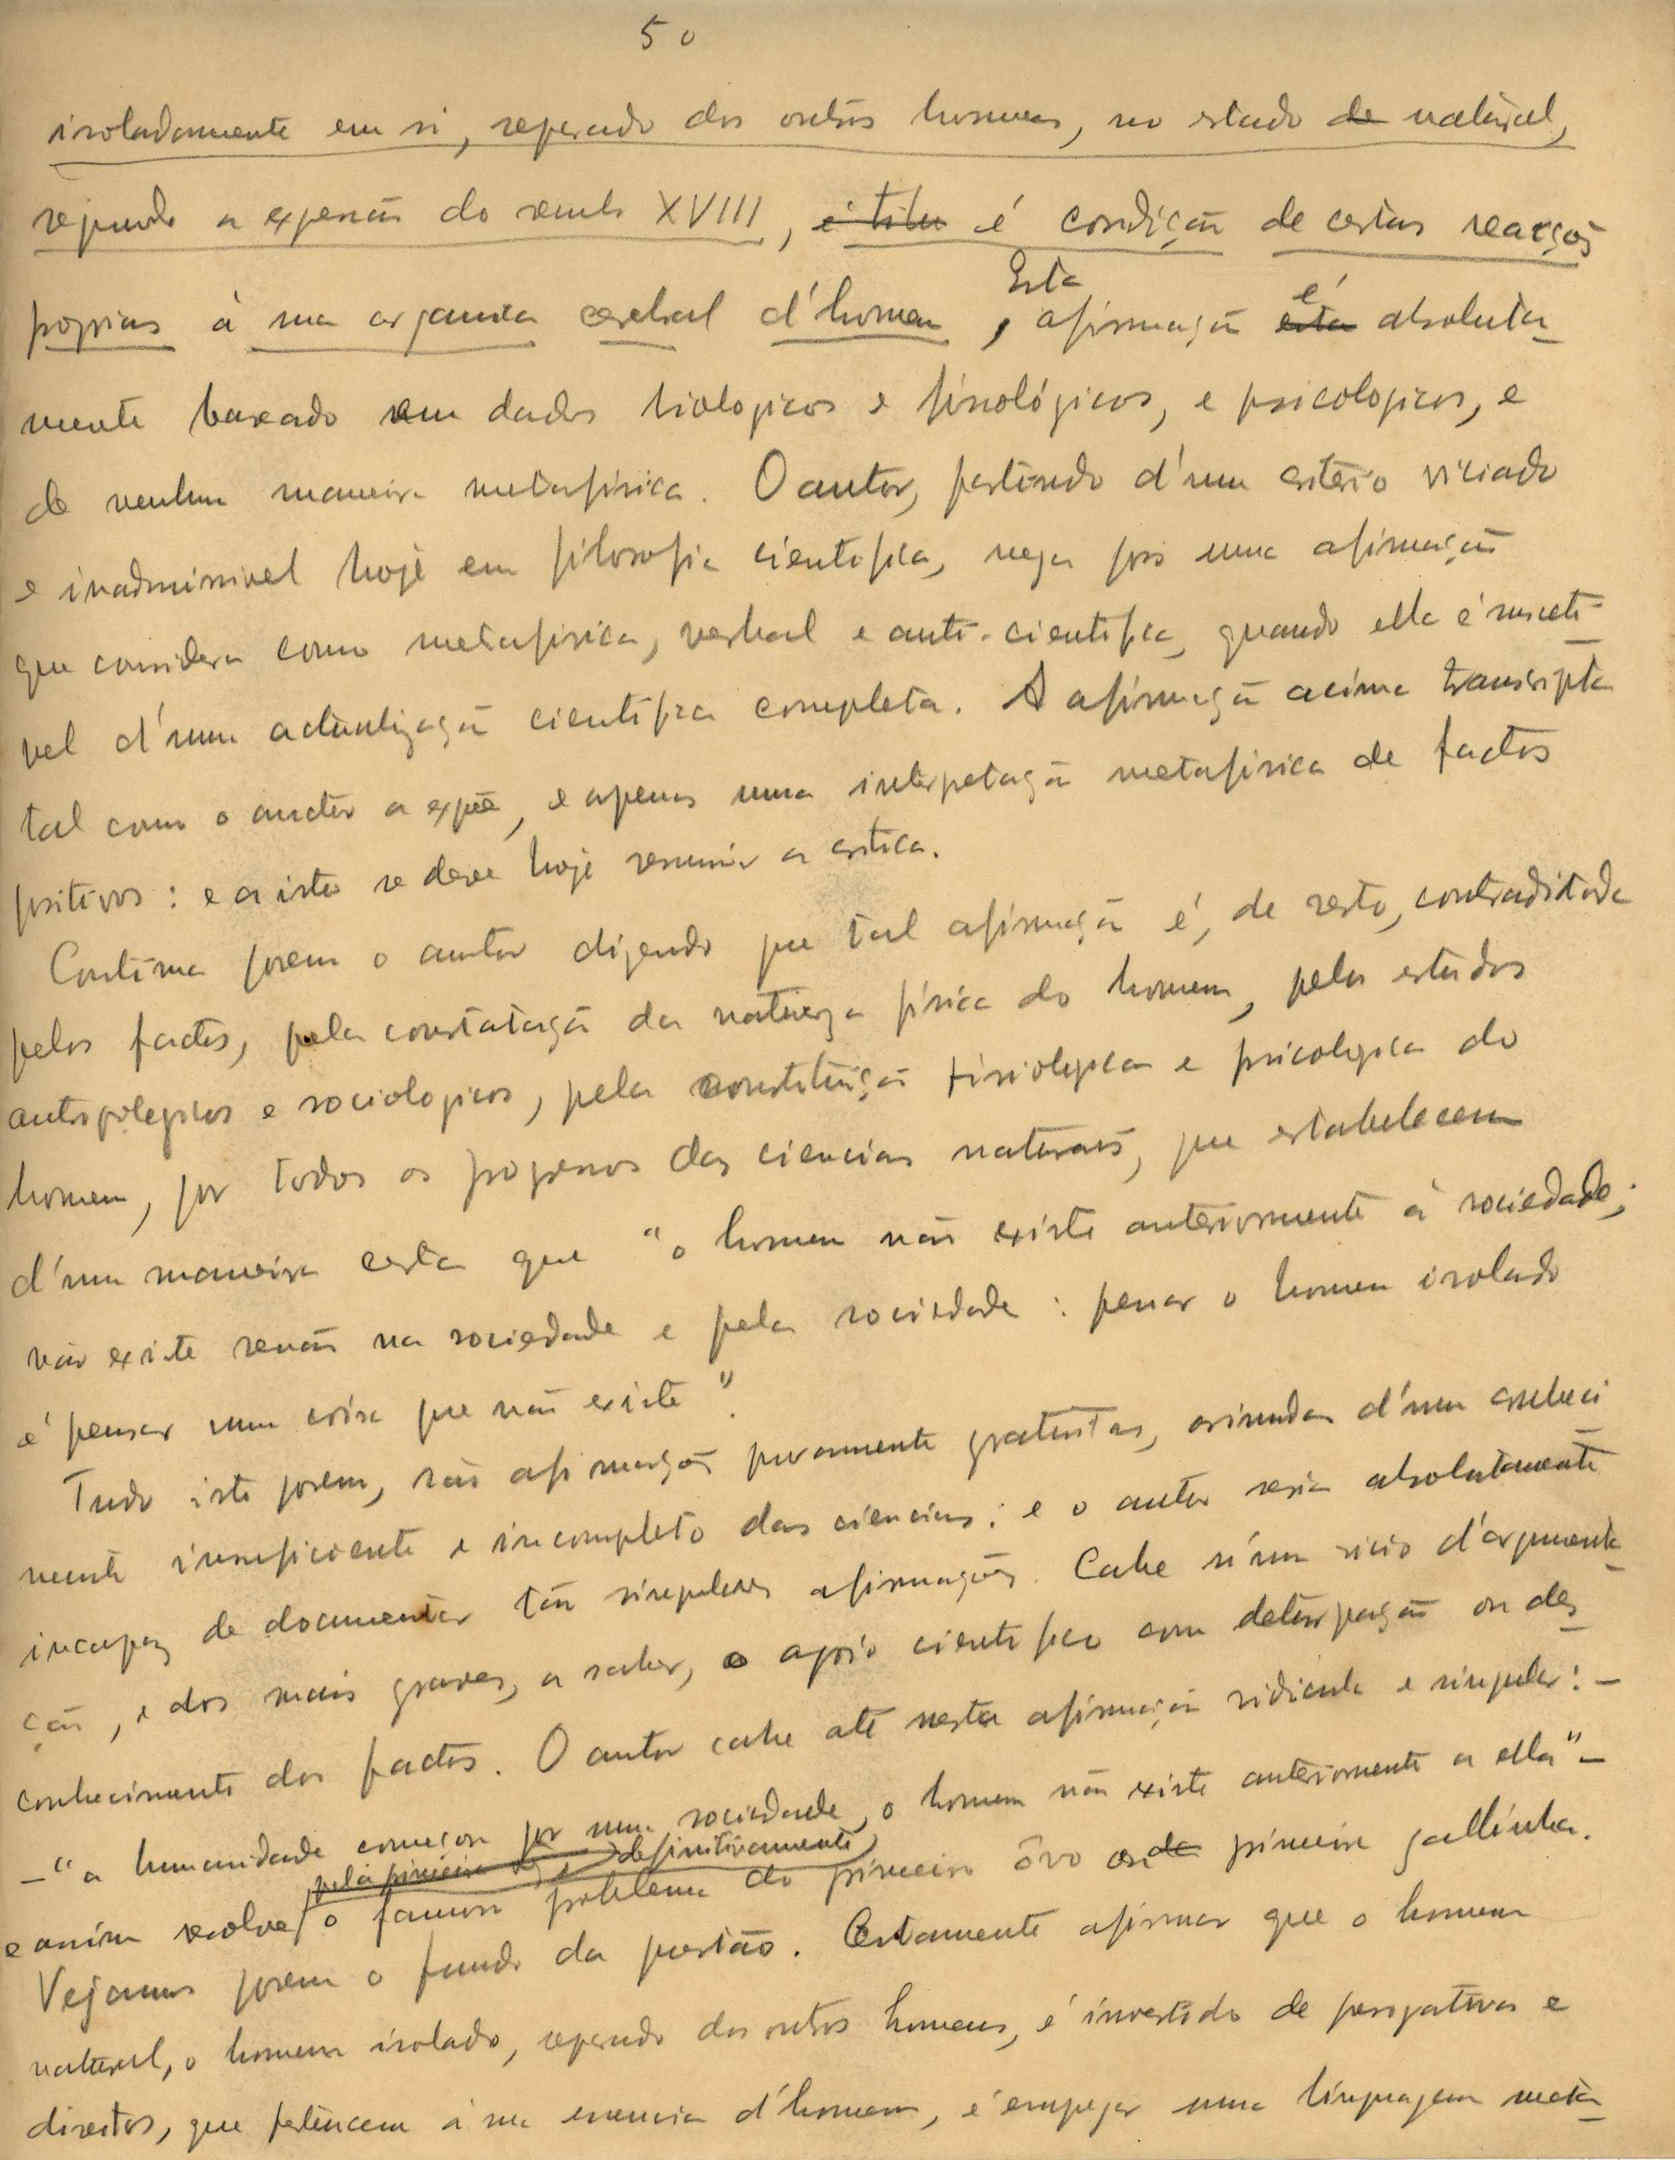 50
isoladamente em si, separado dos outros homens, no estado de natural,
segundo a expressão do seculo XVIII, é titu é condição de certas reacções
proprias á sua organisa cerebral d'homem, Esta afirmação esta é absoluta
mente baseado em dados biologicos e fisiológicos, e psicologicos, e
de nenhuma maneira metafísica. O autor, partindo d'um critério viciado
e inadmissivel hoje em filosofia cientifica, nega pois uma afirmação
que considera como metafísica, verbal e anti-cientifica, quando ella é susceti
vel d'uma actualização cientifica completa. A afirmação acima transcripta
tal como o auctor a expõe, é apenas uma interpetação metafísica de factos
positivos: e a isto se deve hoje resumir a critica.
Continua porem o autor dizendo que tal afirmação é, de resto, contraditada
pelos factos, pela constatação da natureza física do homem, pelos estudos
antropologicos e sociologicos, pela constituição fisiologica e psicologica do
homem, por todos os progressos das ciencias naturais, que estabelecem
d'uma maneira certa que "o homem não existe anteriormente á sociedade;
não existe senão na sociedade e pela sociedade: pensar o homem isolado
é pensar uma coisa que não existe".
Tudo isto porem, são afirmações puramente gratuitas, oriundas d'um conheci
mento insuficiente e incompleto das ciencias: e o autor seria absolutamente
incapaz de documentar tão singulares afirmações. Cahe n'um vicio d'argumenta
ção, e dos mais graves, a saber, o apoio cientifico com deturpação ou des
conhecimento dos factos. O autor cahe até nesta afirmação ridicula e singular: –
– "a humanidade começou por uma sociedade, o homem não existe anteriormente a ella" –
pela primeira definitivamente
e assim resolve o famoso problema do primeiro ôvo ou da primeira gallinha.
Vejamos porem o fundo da questão. Certamente afirmar que o homem
natural, o homem isolado, separado dos outros homens, é investido de perrogativas e
direitos, que pertencem á sua essencia d'homem, é empregar uma linguagem meta